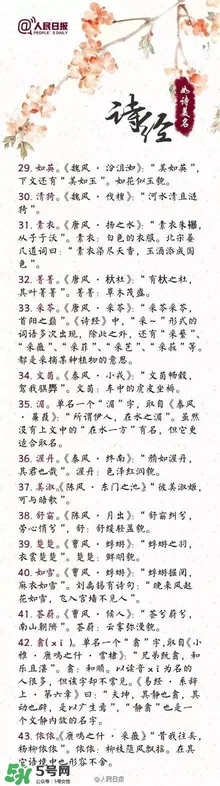 @人民日报
PEOPLE'S DAILY
如诗美名
诗经
29. 如英。《魏风·汾沮洳》：“美如英”，
下文还有“美如玉”。如花似玉貌。
30. 清猗。《魏风·伐檀》：“河水清且涟
猗”。
31. 素衣。《唐风·扬之水》：“素衣朱襮，
从子于沃”。素衣：白色的衣服。北宋晏
几道词曰：“素衣染尽天香，玉酒添成国
色”。
32. 菁菁。《唐风·杕杜》：“有杕之杜，
其叶菁菁”。菁菁：草木茂盛。
33. 采苓。《唐风·采苓》：“采苓采苓，
首阳之巅”。《诗经》中，“采~”形式的
词语多次出现，除此之外，还有“采蘩”、
“采薇”、“采菲”、“采艺”、“采菽”等。
都是采摘某种植物的意思。
34. 文茵。《秦风·小戎》：“文茵畅毂，
驾我骐馵”。文茵：车中的虎皮坐褥。
35. 湄。单名一个“湄”字，取自《秦风
·蒹葭》：“所谓伊人，在水之湄”。虽然
没有上文中的“在水一方”有名，但它更
适合取名。
36. 渥丹。《秦风·终南》：“颜如渥丹，
其君也哉”。渥丹：色泽红润貌。
37. 美淑。《陈风·东门之池》：“彼美淑姬，
可与晤歌”。
38. 舒窈。《陈风·月出》：“舒窈纠兮，
劳心悄兮”，舒：舒缓轻盈貌。
39. 楚楚。《曹风·蜉蝣》：“蜉蝣之羽，
衣裳楚楚”。楚楚：鲜明貌。
40. 如雪。《曹风·蜉蝣》：“蜉蝣掘阅，
麻衣如雪”。刘禹锡有诗句：“晚来风起
花如雪，飞入宫墙不见人”。
41. 荟蔚。《曹风·候人》：“荟兮蔚兮，
南山朝隮”。荟蔚：云雾弥漫貌。
42. 翕（xi）。单名一个“翕”字，取自《小
雅·鹿鸣之什·常棣》：“兄弟既翕，和
乐且湛”。翕：和顺。以读音xi为名的
人很多，但该字却不常见。《易经·系辞
上·第六章》曰：“夫坤，其静也翕，其
动也辟，是以广生焉”，“静翕”也是一
个文静内敛的名字。
43. 依依。《鹿鸣之什·采薇》“昔我往矣，
杨柳依依”。依依：柳枝随风飘拂。在其
它语境中也形容不舍。
@人民日报
5号网